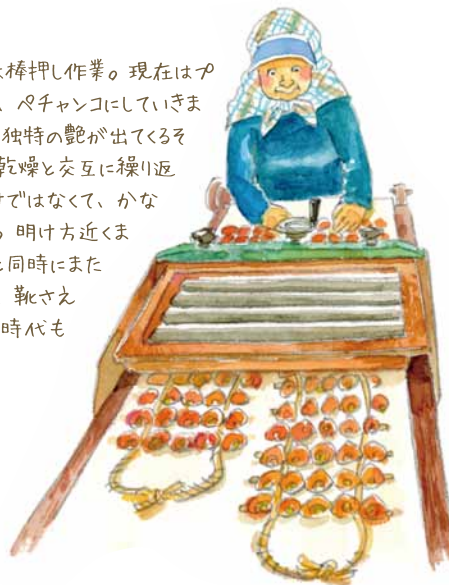 棒押し作業。現在はプ
、ペチャンコにしていきま
独特の艶が出てくるそ
乾燥と交互に繰り返
ではなくて、かな
明け方近くま
と同時にまた
靴さえ
時代も